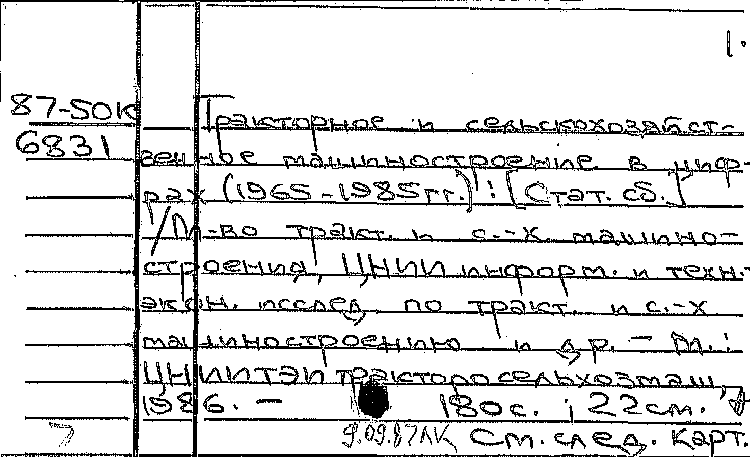 1.
87-50К Тракторное и сельскохозяйст-
6831 венное машиностроение в циф-
рах (1965-1985гг.) : [Стат. сб.]
/М-во тракт. и с.-х. машино-
строения, ЦНИИ информ. и техн.-
экон. исслед. по тракт. и с.-х
машиностроению и др. - М. :
ЦНИИТЭИтракторосельхозмаш,
1986. - 180с. ; 22см.
9.09.87ЛК См. след. карт.